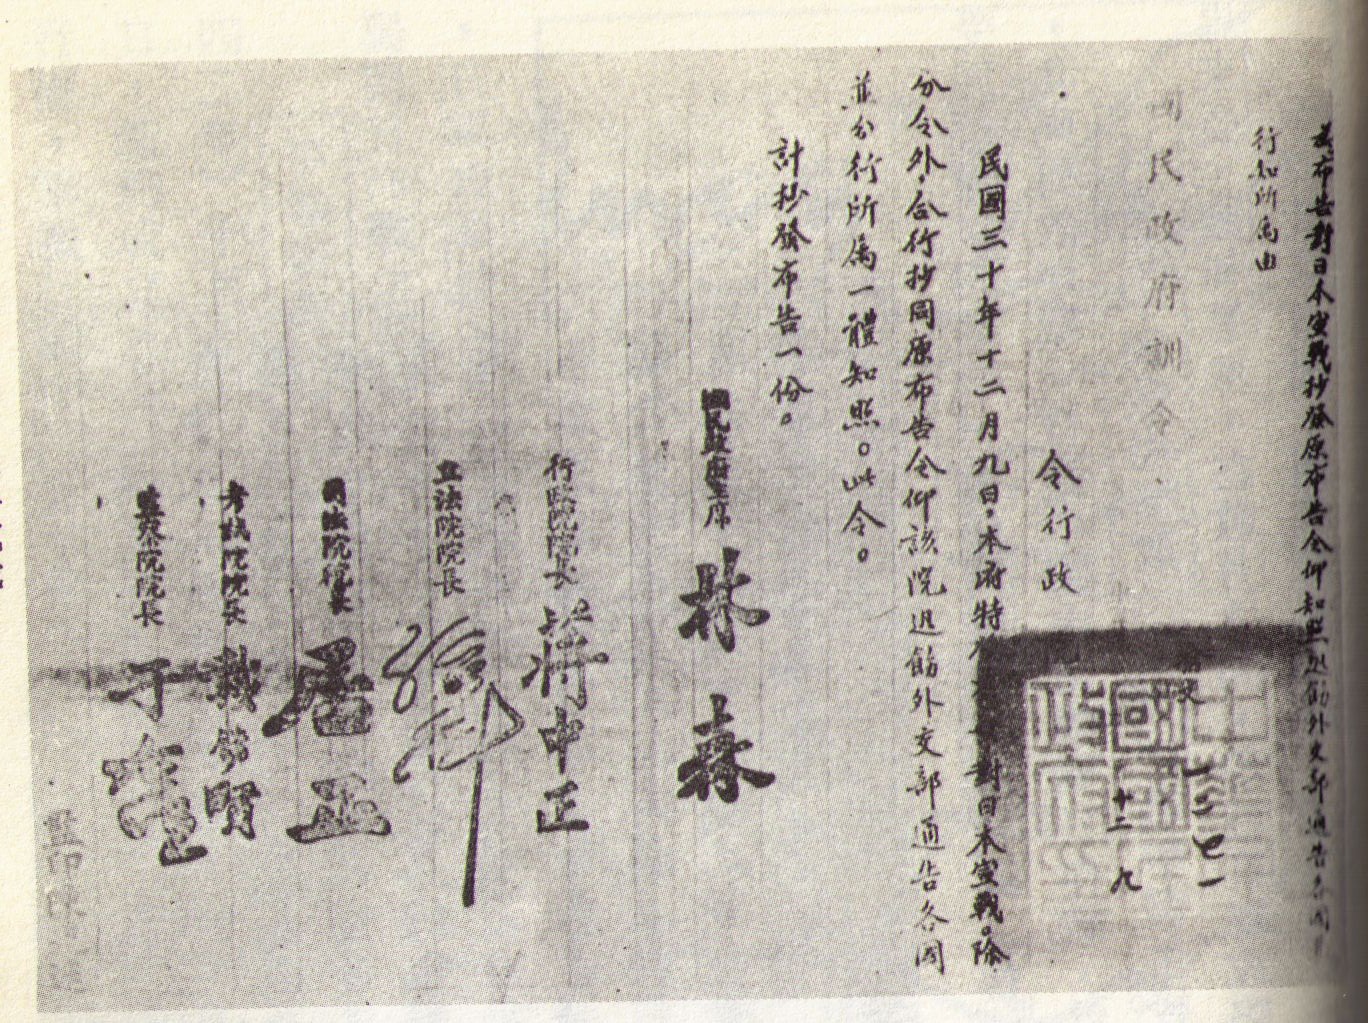 為布告對日本宣戰抄發原布告令仰知照並飭外交部通告各國
行知所屬由
國民政府訓令
渝文
一二七一
十二 九
令行政
民國三十年十二月九日。本府特 對日本宣戰。除
分令外，合行抄同原布告令仰該院迅飭外交部通告各國
並分行所屬一體知照。此令。
計抄發布告一份。
國民政府主席 林森
行政院院長 蔣中正
立法院院長 孫科
司法院院長 居正
考試院院長 戴傳賢
監察院院長 于右任